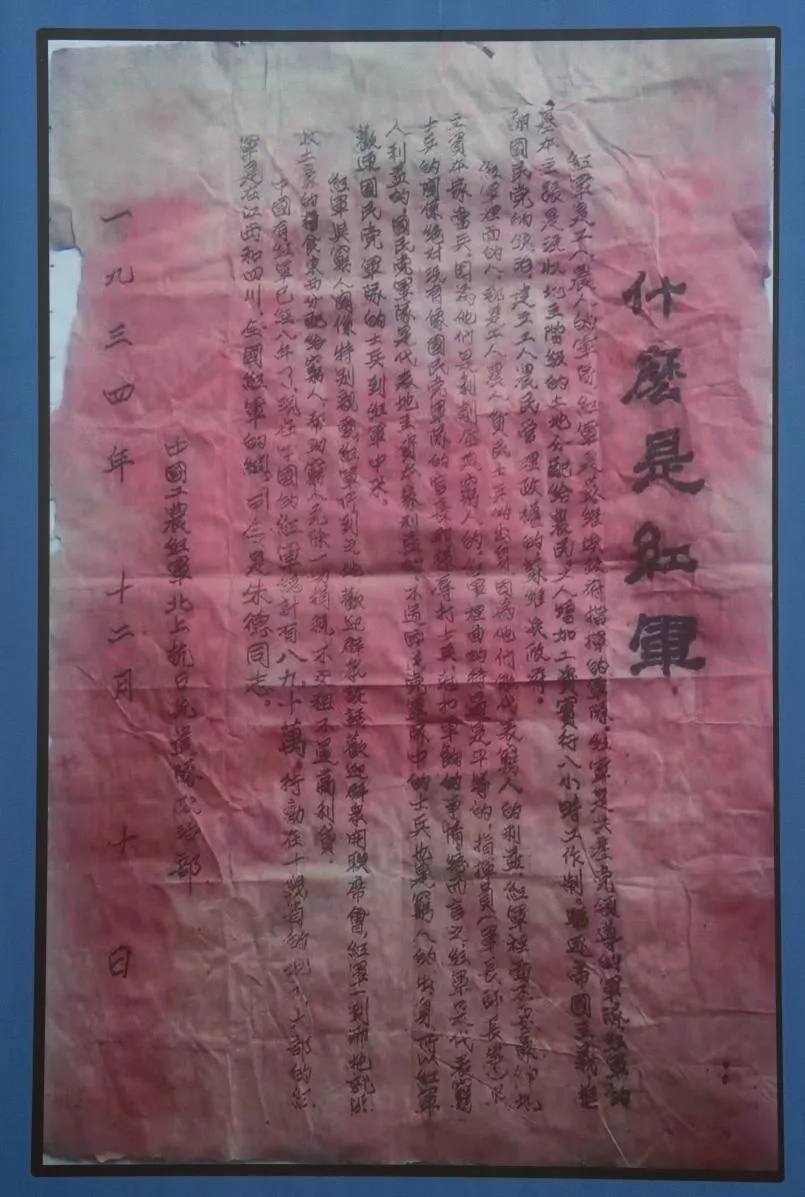 什麼是紅軍
紅軍是工人農人的軍隊，紅軍是蘇維埃政府指揮的軍隊。紅軍是共產党領導的軍隊。紅軍的
基本主張是沒收地主階級的土地分配給農民，工人增加工資實行八小時工作制。驅逐帝國主義，推
翻國民党的統治，建立工人農民管理政權的蘇維埃政府。
紅軍裡面的人，都是工人農人貧民士兵的出身，因為他們能代表窮人的利益，紅軍裡面不要
主資本家當兵，因為他們是剝削壓迫窮人的，紅軍裡面的待遇是平等的，指揮員（軍長師長
士兵的關係絕对沒有像國民党軍隊的官長那樣辱打士兵，尅扣軍餉的事情，總而言之，紅軍是代表窮
人利益的，國民党軍隊是代表地主資本家利益的，不過國民党軍隊中的士兵也是窮人的出身，所以紅軍
歡迎國民党軍隊的士兵到紅軍中來。
紅軍與窮人關係特别親愛，紅軍所到之地，歡迎群眾談話，歡迎群眾開聯席會，紅軍一到那地就
收土豪的糧食東西分配給窮人，帮助窮人免除一切捐税，不交租不還高利貸。
中國有紅軍已經八年了，現在全國的紅軍總計有八九十萬，行動在十幾省的地方，大部的紅
軍是在江西和四川，全國紅軍的總司令是朱德同志。
中國工農紅軍北上抗日先遣隊政治部
一九三四年 十二月 十日